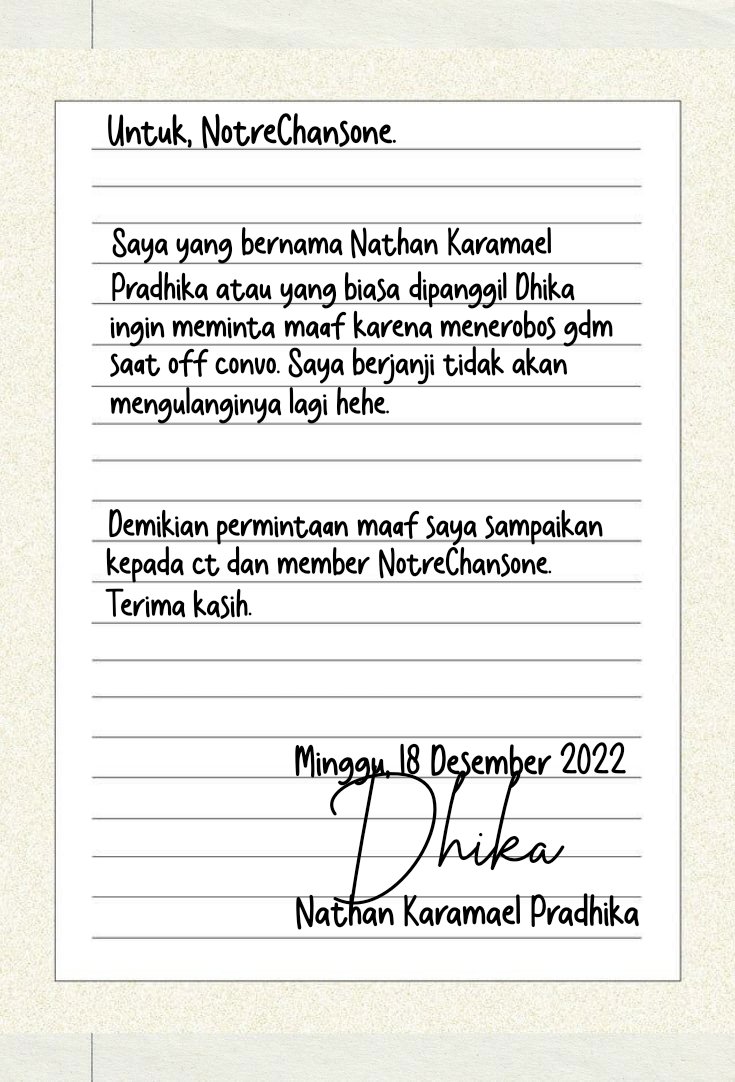 Untuk, NotreChansone.
Saya yang bernama Nathan Karamael
Pradhika atau yang biasa dipanggil Dhika
ingin meminta maaf karena menerobos gdm
saat off convo. Saya berjanji tidak akan
mengulanginya lagi hehe.
Demikian permintaan maaf saya sampaikan
kepada ct dan member NotreChansone.
Terima kasih.
Minggu, 18 Desember 2022
Dhika
Nathan Karamael Pradhika